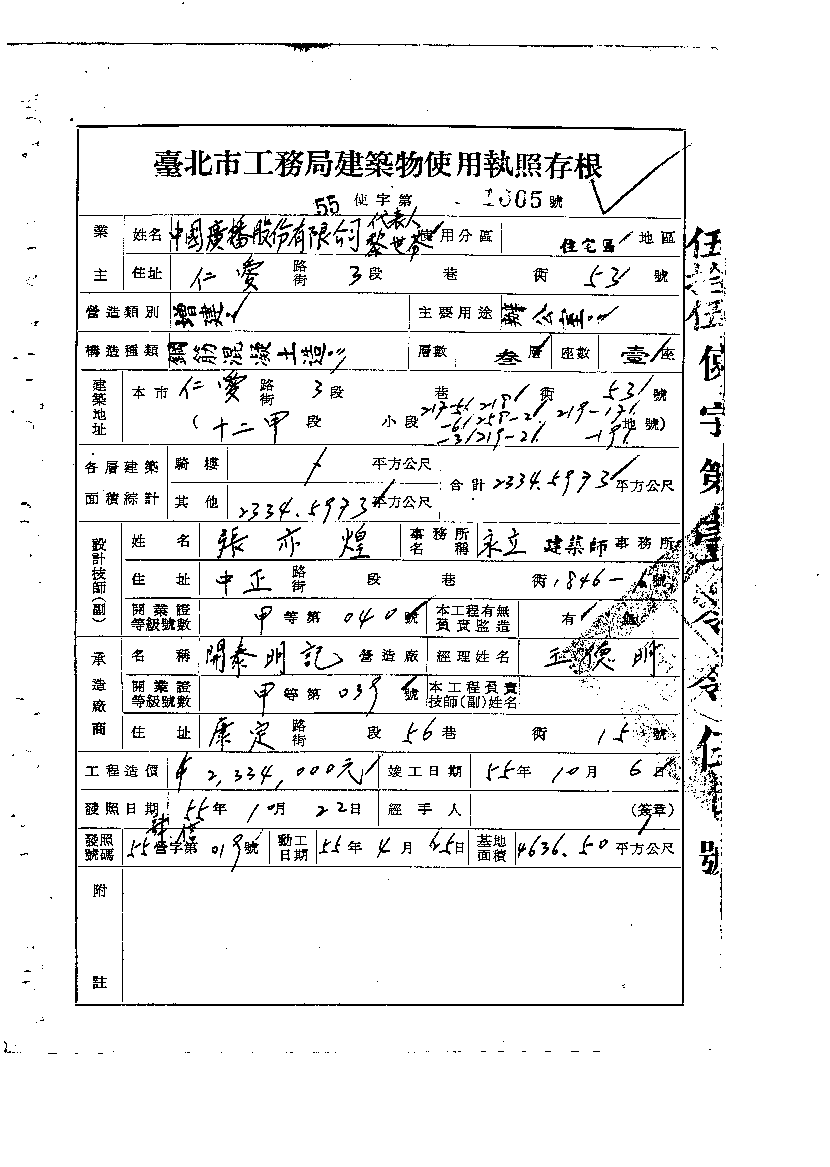 臺北市工務局建築物使用執照存根
55 使字第 1005 號
業主 姓名 中國廣播股份有限公司 代表人 黎世芬 使用分區 住宅區 地區
住址 仁愛 路街 3 段 巷 衖 53 號
營造類別 增建 主要用途 辦公室
構造種類 鋼筋混凝土造 層數 叁 層 座數 壹 座
建築地址 本市 仁愛 路街 3 段 巷 衖 53 號
(十二甲 段 小段 地號)
各層建築面積綜計 騎樓 平方公尺 合計 2334.5973 平方公尺
其他 2334.5973 平方公尺
設計技師(副) 姓名 張亦煌 事務所名稱 永立 建築師 事務所
住址 中正 路街 段 巷 衖 1846-6 號
開業證等級號數 甲 等第 040 號 本工程有無負責監造 有 無
承造廠商 名稱 開泰明記 營造廠 經理姓名 王德明
開業證等級號數 甲 等第 039 號 本工程負責技師(副)姓名
住址 康定 路街 段 56 巷 衖 15 號
工程造價 2,334,000元 竣工日期 55年 10月 6日
發照日期 55年 10月 22日 經手人 (簽章)
發照號碼 55 營字第 019 號 動工日期 55年 4月 日 基地面積 4636.50 平方公尺
附註
伍拾伍使字第壹 號